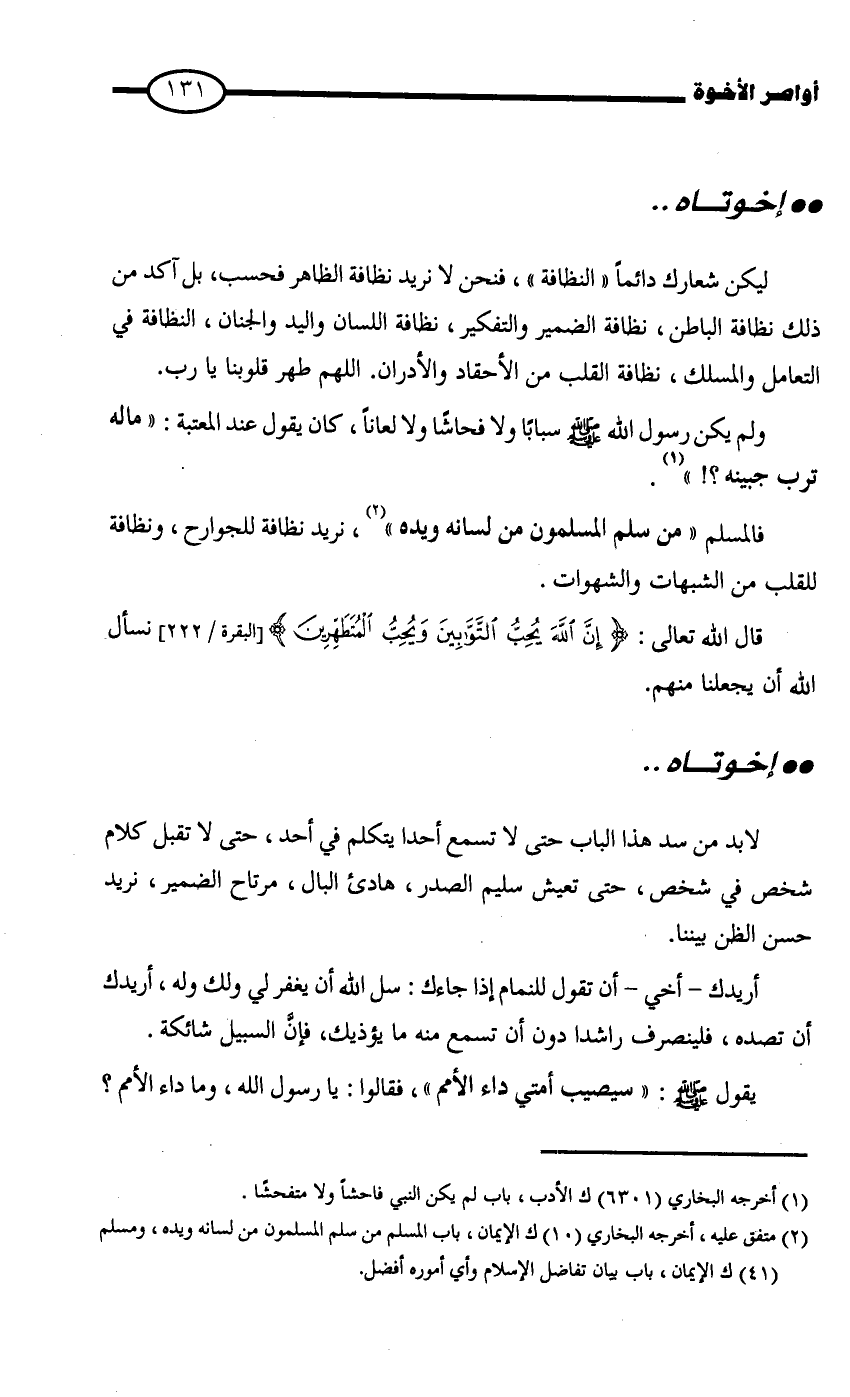 أواصر الأخوة ١٣١
●● إخـوتــاه ..
ليكن شعارك دائماً « النظافة » ، فنحن لا نريد نظافة الظاهر فحسب، بل آكد من
ذلك نظافة الباطن ، نظافة الضمير والتفكير ، نظافة اللسان واليد والجنان ، النظافة في
التعامل والمسلك ، نظافة القلب من الأحقاد والأدران. اللهم طهر قلوبنا يا رب.
ولم يكن رسول الله ﷺ سبابًا ولا فحاشًا ولا لعاناً ، كان يقول عند المعتبة : « ماله
ترب جبينه ؟! »(١) .
فالمسلم « من سلم المسلمون من لسانه ويده »(٢) ، نريد نظافة للجوارح ، ونظافة
للقلب من الشبهات والشهوات .
قال الله تعالى : ﴿ إِنَّ ٱللَّهَ يُحِبُّ ٱلتَّوَّٰبِينَ وَيُحِبُّ ٱلْمُتَطَهِّرِينَ ﴾ [البقرة / ٢٢٢] نسأل
الله أن يجعلنا منهم.
●● إخـوتــاه ..
لابد من سد هذا الباب حتى لا تسمع أحدا يتكلم في أحد ، حتى لا تقبل كلام
شخص في شخص ، حتى تعيش سليم الصدر ، هادئ البال ، مرتاح الضمير ، نريد
حسن الظن بيننا.
أريدك - أخي - أن تقول للنمام إذا جاءك : سل الله أن يغفر لي ولك وله ، أريدك
أن تصده ، فلينصرف راشدا دون أن تسمع منه ما يؤذيك، فإنَّ السبيل شائكة .
يقول ﷺ : « سيصيب أمتي داء الأمم » ، فقالوا : يا رسول الله ، وما داء الأمم ؟
(١) أخرجه البخاري (٦٣٠١) ك الأدب ، باب لم يكن النبي فاحشاً ولا متفحشًا .
(٢) متفق عليه ، أخرجه البخاري (١٠) ك الإيمان ، باب المسلم من سلم المسلمون من لسانه ويده ، ومسلم
(٤١) ك الإيمان ، باب بيان تفاضل الإسلام وأي أموره أفضل.